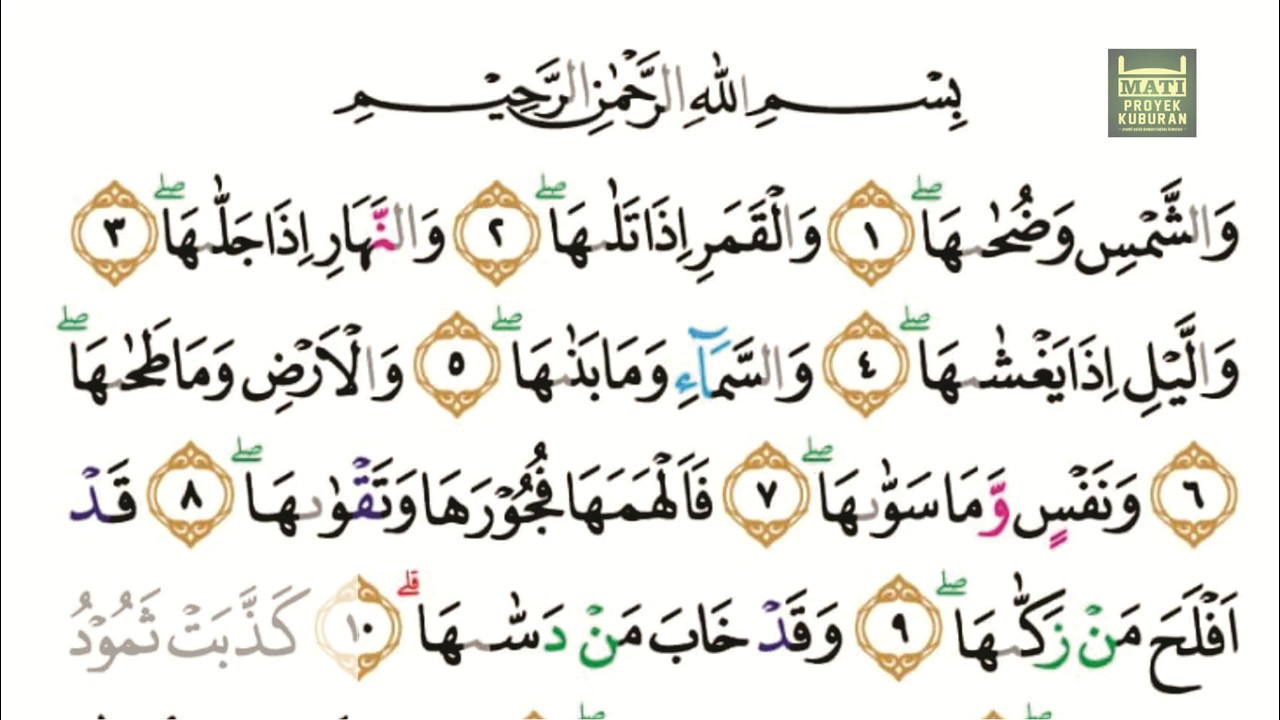 بِسْمِ اللّٰهِ الرَّحْمٰنِ الرَّحِيْمِ
MATI
PROYEK
KUBURAN
وَالشَّمْسِ وَضُحٰىهَاۖ ١ وَالْقَمَرِ اِذَا تَلٰىهَاۖ ٢ وَالنَّهَارِ اِذَا جَلّٰىهَاۖ ٣
وَالَّيْلِ اِذَا يَغْشٰىهَاۖ ٤ وَالسَّمَاۤءِ وَمَا بَنٰىهَاۖ ٥ وَالْاَرْضِ وَمَا طَحٰىهَاۖ
٦ وَنَفْسٍ وَّمَا سَوّٰىهَاۖ ٧ فَاَلْهَمَهَا فُجُوْرَهَا وَتَقْوٰىهَاۖ ٨ قَدْ
اَفْلَحَ مَنْ زَكّٰىهَاۖ ٩ وَقَدْ خَابَ مَنْ دَسّٰىهَاۗ ١٠ كَذَّبَتْ ثَمُوْدُ